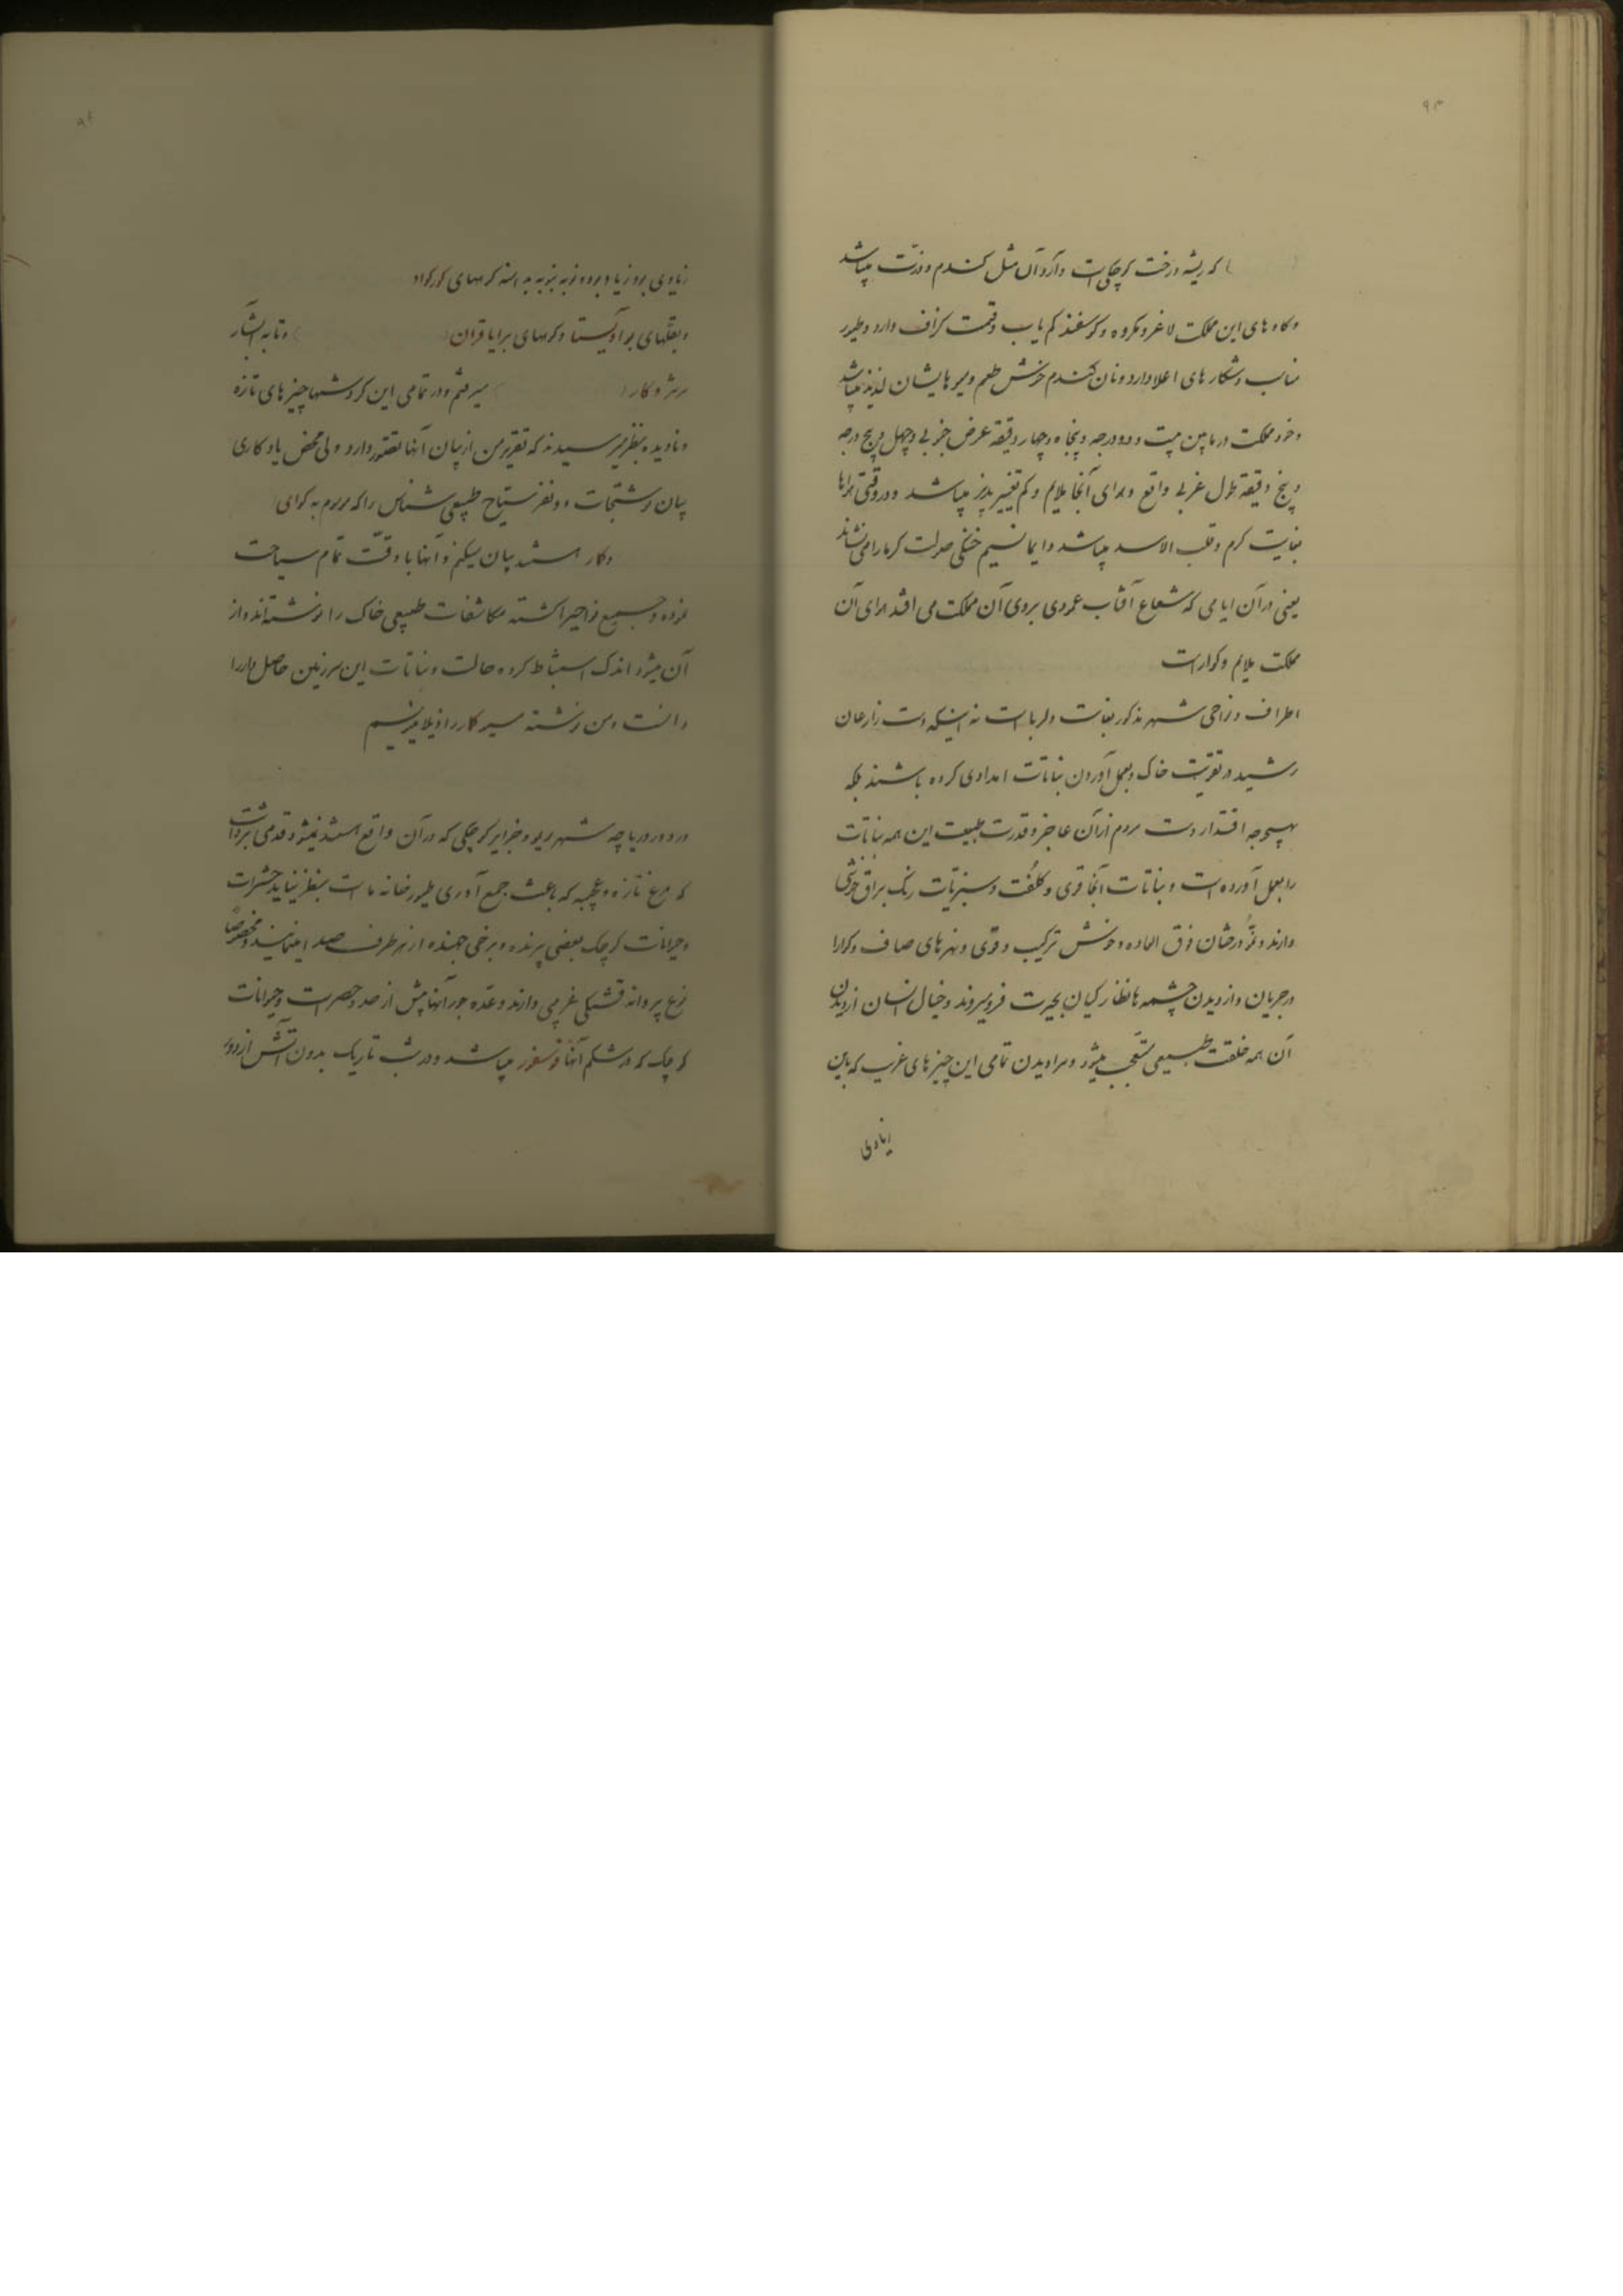 ۹۳
) که ریشه درخت کوچکی است و آرد آن مثل کندم و ذرت میباشد
و کاوهای این مملکت لاغر و مکروه و کوسفند کم یاب و قیمت کزاف دارد و طیور
مناسب و شکارهای اعلا دارد و نان کندم خوش طعم و میوهایشان لذیذ میباشد
و خود مملکت در مابین بیست و دو درجه و پنجاه و چهار دقیقه عرض جنوبی و چهل و پنج درجه
و پنج دقیقه طول غربی واقع و هوای آنجا ملایم و کم تغییر پذیر میباشد و در وقتی هواها
بغایت کرم و قلب الاسد میباشد دایما نسیم خنکی صولت کرما را می نشاند
یعنی در آن ایامی که شعاع آفتاب عمودی بروی آن مملکت می افتد هوای آن
مملکت ملایم و کوارا است
اطراف و نواحی شهر مذکور بغایت دلربا است نه اینکه دست زارعان
رشید در تقویت خاک و بعمل آوردن نباتات امدادی کرده باشند بلکه
بهیچوجه اقتدار دست مردم از آن عاجز و قدرت طبیعت این همه نباتات
را بعمل آورده است و نباتات آنجا قوی و کلفت و سبزیات رنک براق خوشی
دارند و درختان فوق العاده و خوش ترکیب و قوی و نهرهای صاف و کوارا
در جریان و از دیدن چشمه ها نظارکیان بحیرت فرو میروند و خیال انسان از دیدن
آن همه خلقت طبیعی متعجب میشود و مرا دیدن تمامی این چیزهای غریب که باین
زیادی
۹۴
زیادی بود زیاد بوده کوههای کورکواد
و بقلهای بوآویستا و کوههای برایا قران ) و تا به آبشار
) میرفتم و در تمامی این کردشها چیزهای تازه
و نادیده بنظر میرسیدند که تقریر من از بیان آنها تقصیر دارد ولی محض یادکاری
بیان نوشتجات دو نفر سیاح طبیعی شناس را که موسوم به کوای
و کار هستند بیان میکنم و آنها با دقت تمام سیاحت
نموده و جمیع نواحی را کشته مکاشفات طبیعی خاک را نوشته اند و از
آن میشود اندک استنباط کرده حالت و نباتات این سرزمین حاصل دار را
دانست و من نوشته مسیو کار را ذیلا مینویسم
در دور دریاچه شهر ریو و جزایر کوچکی که در آن واقع هستند نمیشود قدمی برداشت
که مرغ تازه و عجیبه که باعث جمع آوری طیور خانه ما است بنظر نیاید حشرات
و حیوانات کوچک بعضی پرنده و برخی جهنده از هر طرف صدا مینمایند و مخصوصا
نوع پروانه قشنکی غریبی دارند و عده جور آنها بیش از حد و حصر است و حیوانات
کوچک که در شکم آنها فوسفور میباشد و در شب تاریک بدون آتش از دور